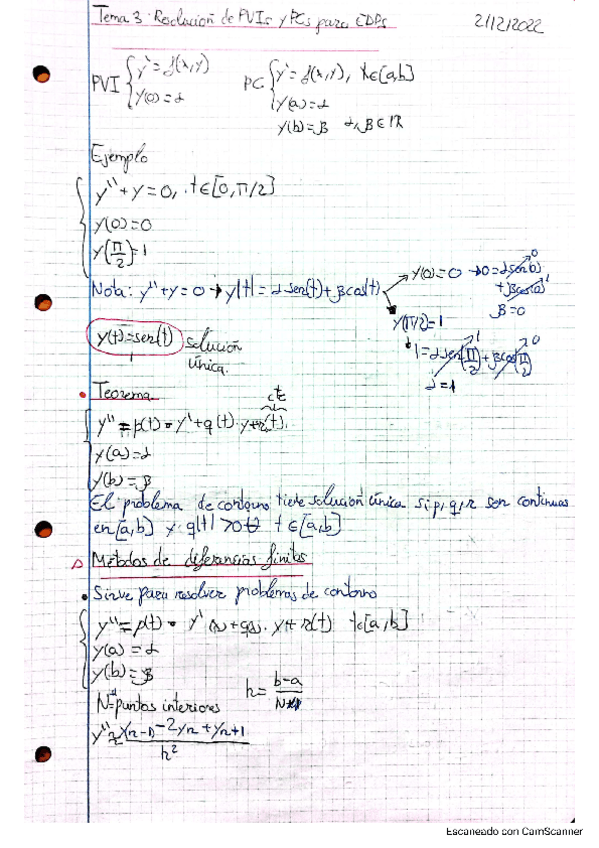 Tema 3: Resolución de PVIs y PCs para EDPs 2/12/2022
PVI { y' = f(x,y)
y(0) = α
PC { y' = f(x,y), x∈[a,b]
y(a) = α
y(b) = β α, β ∈ IR
Ejemplo
y'' + y = 0, t∈[0, π/2]
y(0) = 0
y(π/2) = 1
Nota: y'' + y = 0 → y(t) = α sen(t) + β cos(t)
y(0) = 0 → 0 = α sen(0) 0
+ β cos(0) 1
β = 0
y(π/2) = 1
1 = α sen(π/2) 1 + β cos(π/2) 0
α = 1
y(t) = sen(t) solución
única.
• Teorema
cte
y'' = p(t) · y' + q(t) · y + r(t).
y(a) = α
y(b) = β
El problema de contorno tiene solución única si p, q, r son continuas
en [a,b] y q(t) > 0 ∀ t∈[a,b]
Métodos de diferencias finitas
• Sirve para resolver problemas de contorno
y'' = p(t) · y' + q · y + r(t) t∈[a,b]
y(a) = α
y(b) = β
N = puntos interiores
h = b-a / N+1
y'' ≈ y(n-1) - 2yn + yn+1 / h²
Escaneado con CamScanner